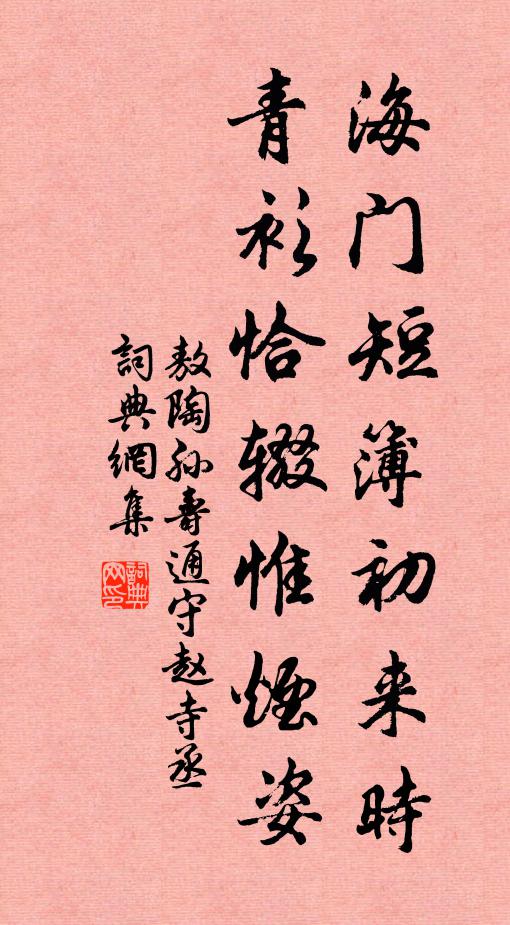 海门短簿初来時
青衫恰辍惟煙姿
敖陶孙壽通守赵寺丞
詞典網集
詞典網印